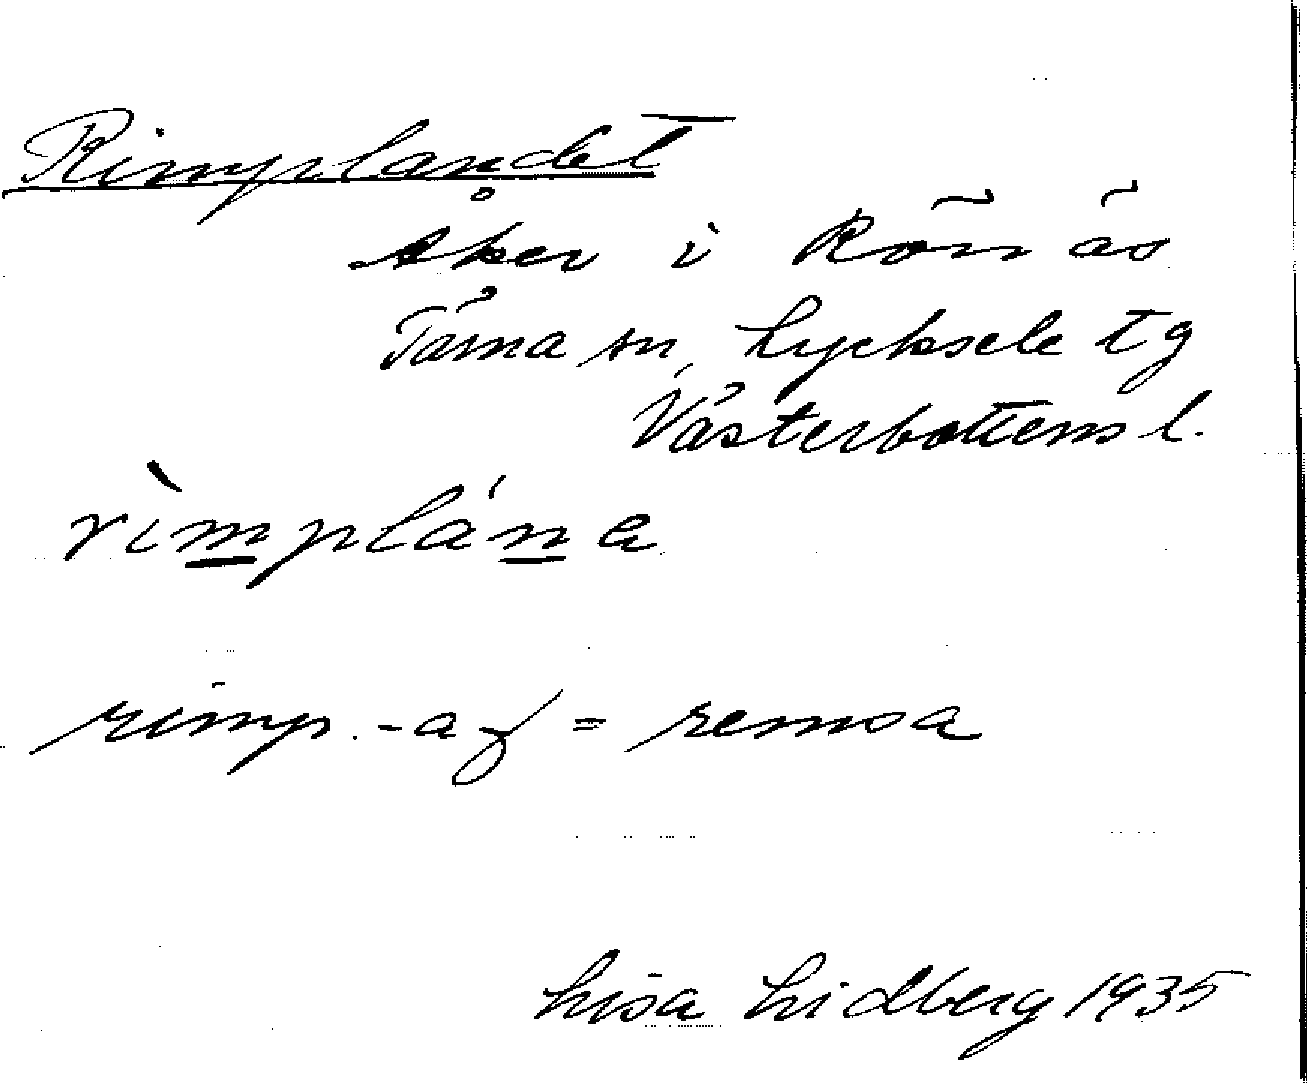 Rimplandet
Åker i Rönäs
Tärna sn, Lycksele tg
Västerbottens l.
rìmplána
rimp. -a f = remsa
Lisa Lidberg 1935